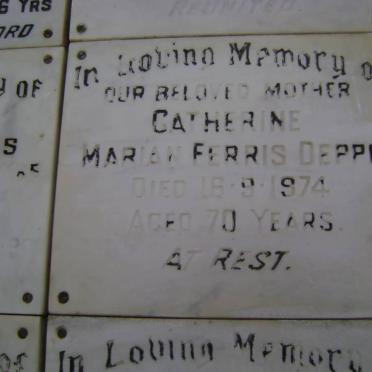 6 YRS
ORD
REUNITED.
Y OF
S
In Loving Memory o
OUR BELOVED MOTHER
CATHERINE
MARIAN FERRIS DEPP
DIED 18·9·1974
AGED 70 YEARS.
AT REST.
of
In Loving Memory